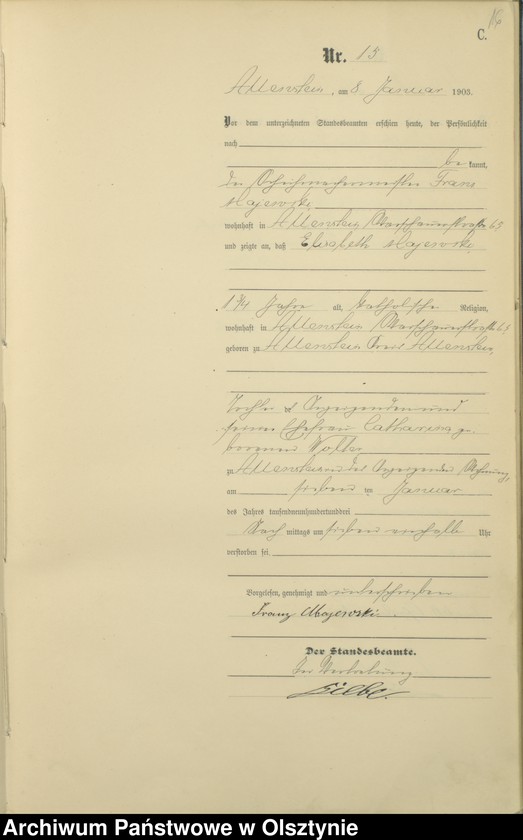 16
C.
Nr. 15
Allenstein, am 8. Januar 1903.
Vor dem unterzeichneten Standesbeamten erschien heute, der Persönlichkeit
nach
be kannt,
der Schuhmachermeister Franz
Majewski,
wohnhaft in Allenstein, Warschauerstraße 69
und zeigte an, daß Elisabeth Majewski,
1 3/4 Jahre alt, katholischer Religion,
wohnhaft in Allenstein, Warschauerstraße 69
geboren zu Allenstein, Kreis Allenstein,
Tochter des Anzeigenden und
seiner Ehefrau Catharina ge-
borenen
zu Allenstein in des Anzeigenden Wohnung,
am sieben ten Januar
des Jahres tausendneunhundertunddrei
Nach mittags um sieben einhalb Uhr
verstorben sei.
Vorgelesen, genehmigt und unterschrieben
Franz Majewski.
Der Standesbeamte.
In Vertretung
Archiwum Państwowe w Olsztynie